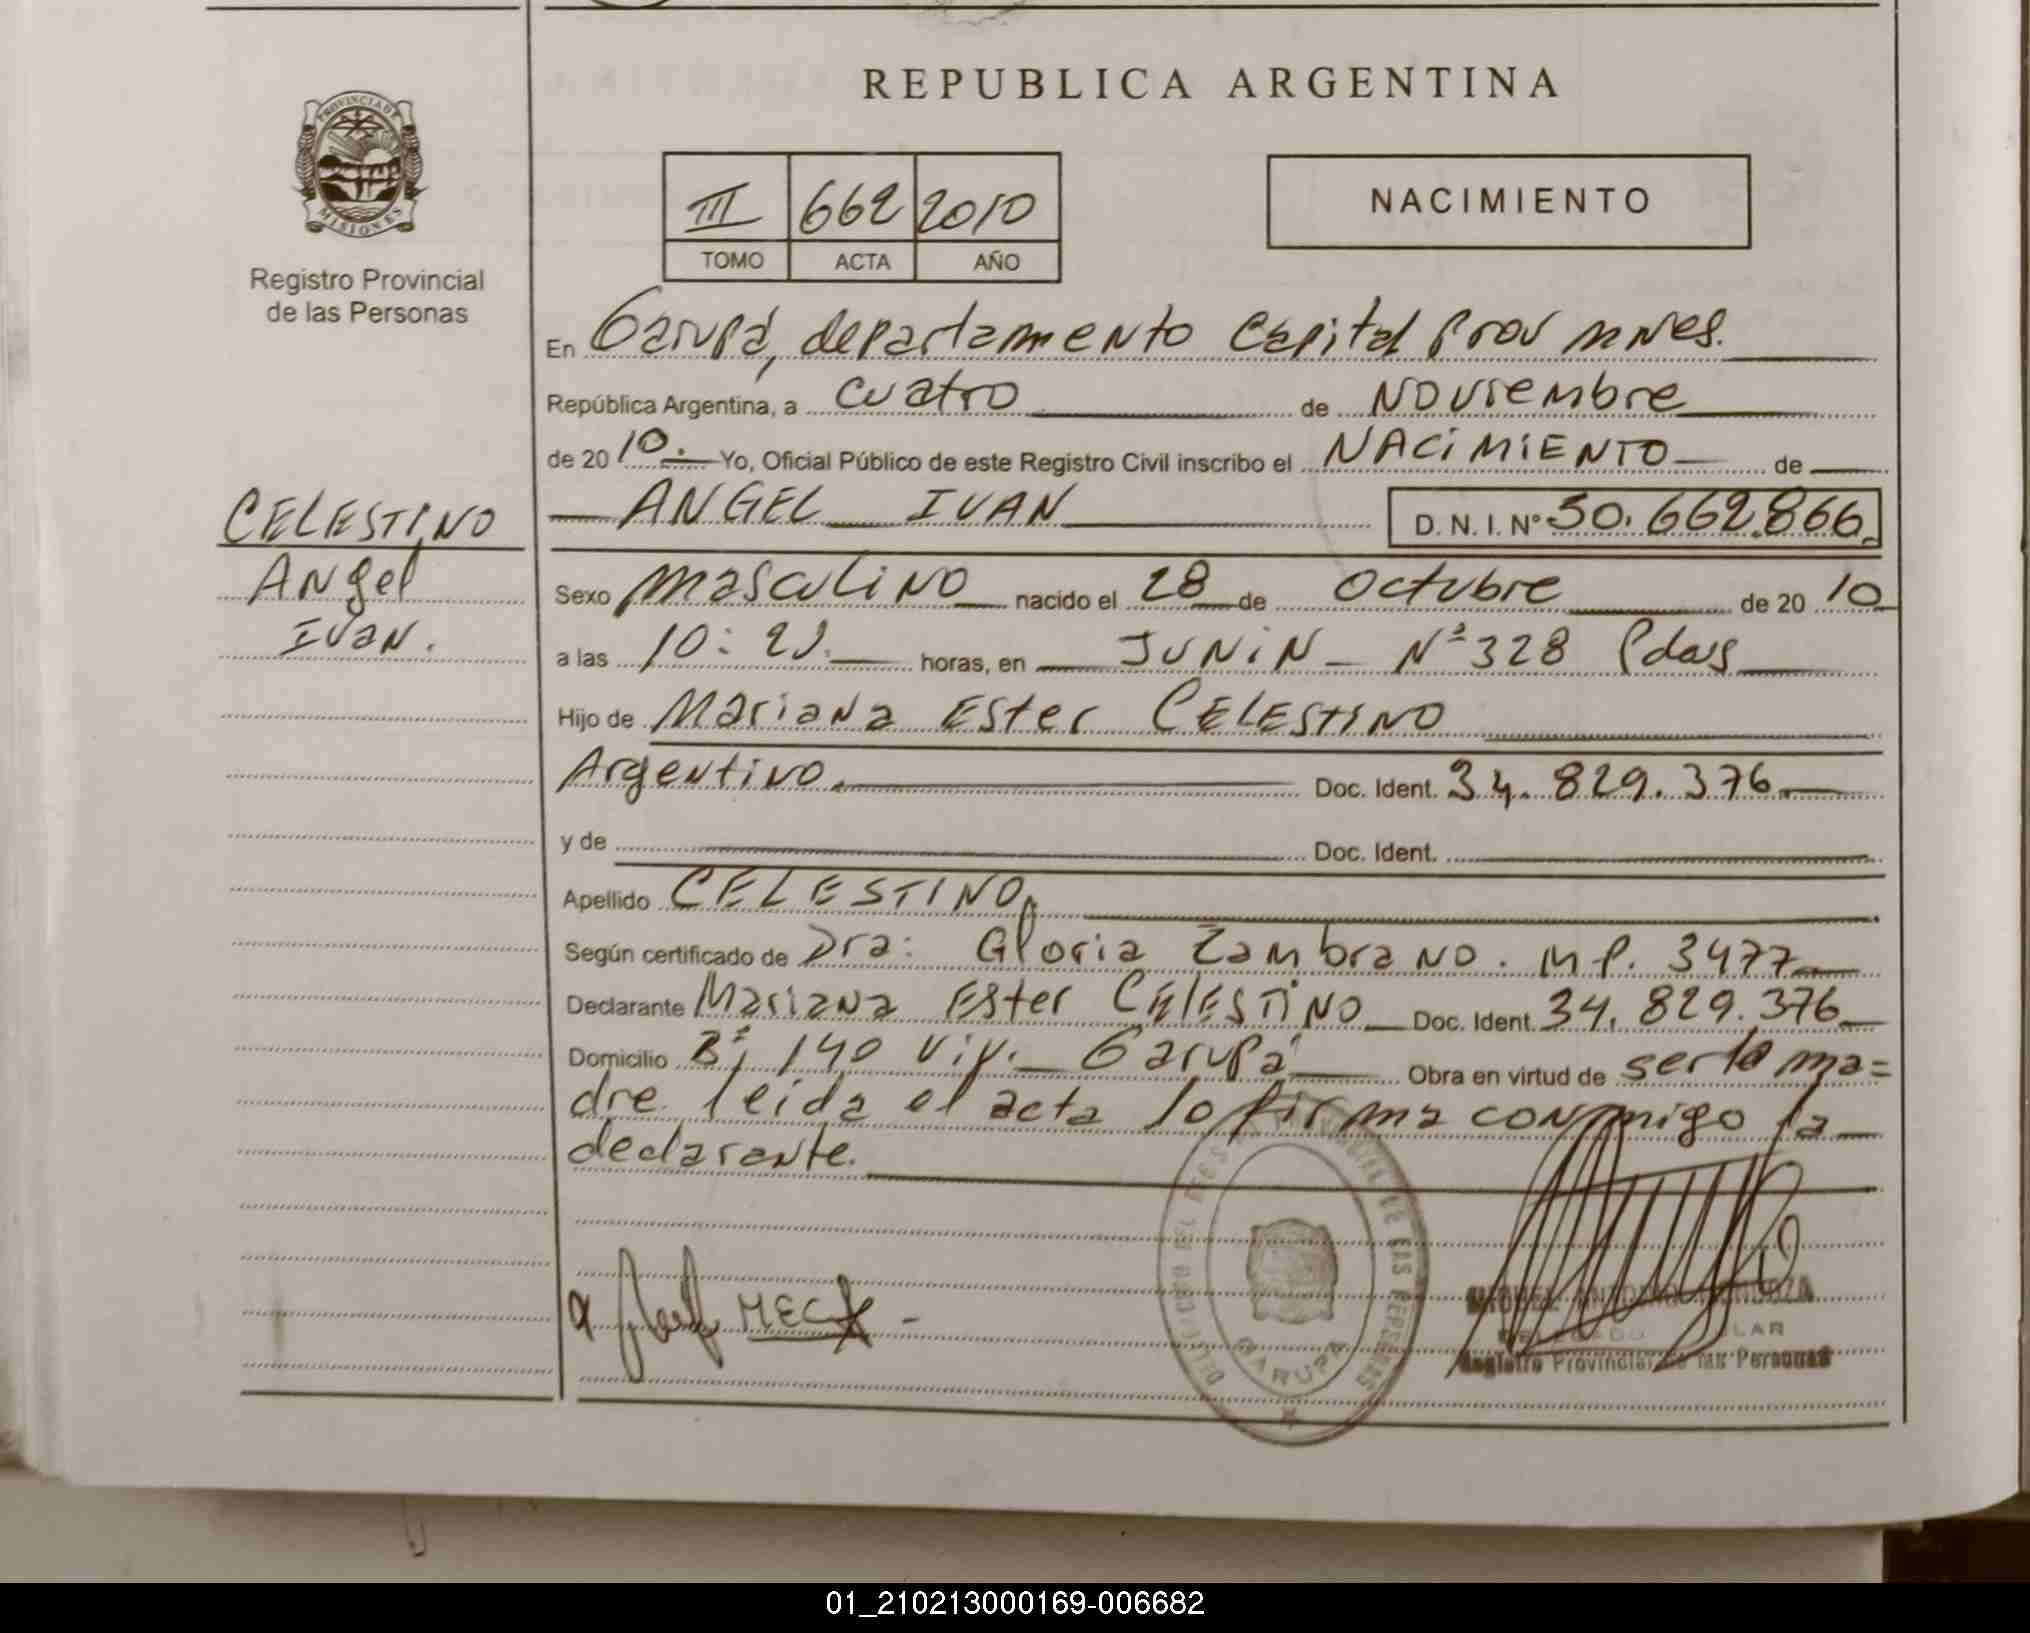 REPUBLICA ARGENTINA
PROVINCIA DE MISIONES
Registro Provincial
de las Personas
III 662 2010
TOMO ACTA AÑO
NACIMIENTO
En Garupá, departamento Capital Prov mnes.
República Argentina, a cuatro de Noviembre
de 2010. Yo, Oficial Público de este Registro Civil inscribo el NACIMIENTO de
CELESTINO
Angel
Ivan.
ANGEL IVAN D. N. I. Nº 50.662.866
Sexo masculino nacido el 28 de octubre de 2010
a las 10: 21. horas, en JUNIN Nº 328 Pdas
Hijo de Mariana Ester CELESTINO
Argentino. Doc. Ident. 34.829.376
y de Doc. Ident.
Apellido CELESTINO
Según certificado de Dra: Gloria Zambrano. M P. 3477
Declarante Mariana Ester CELESTINO Doc. Ident. 34.829.376
Domicilio Bº 140 viv. Garupá Obra en virtud de ser la ma=
dre leida el acta lo firma conmigo la
declarante.
MEC
DELEGACION DEL REGISTRO PROVINCIAL DE LAS PERSONAS
GARUPA
MIGUEL ANTONIO MENDOZA
DELEGADO TITULAR
Registro Provincial de las Personas
01_210213000169-006682